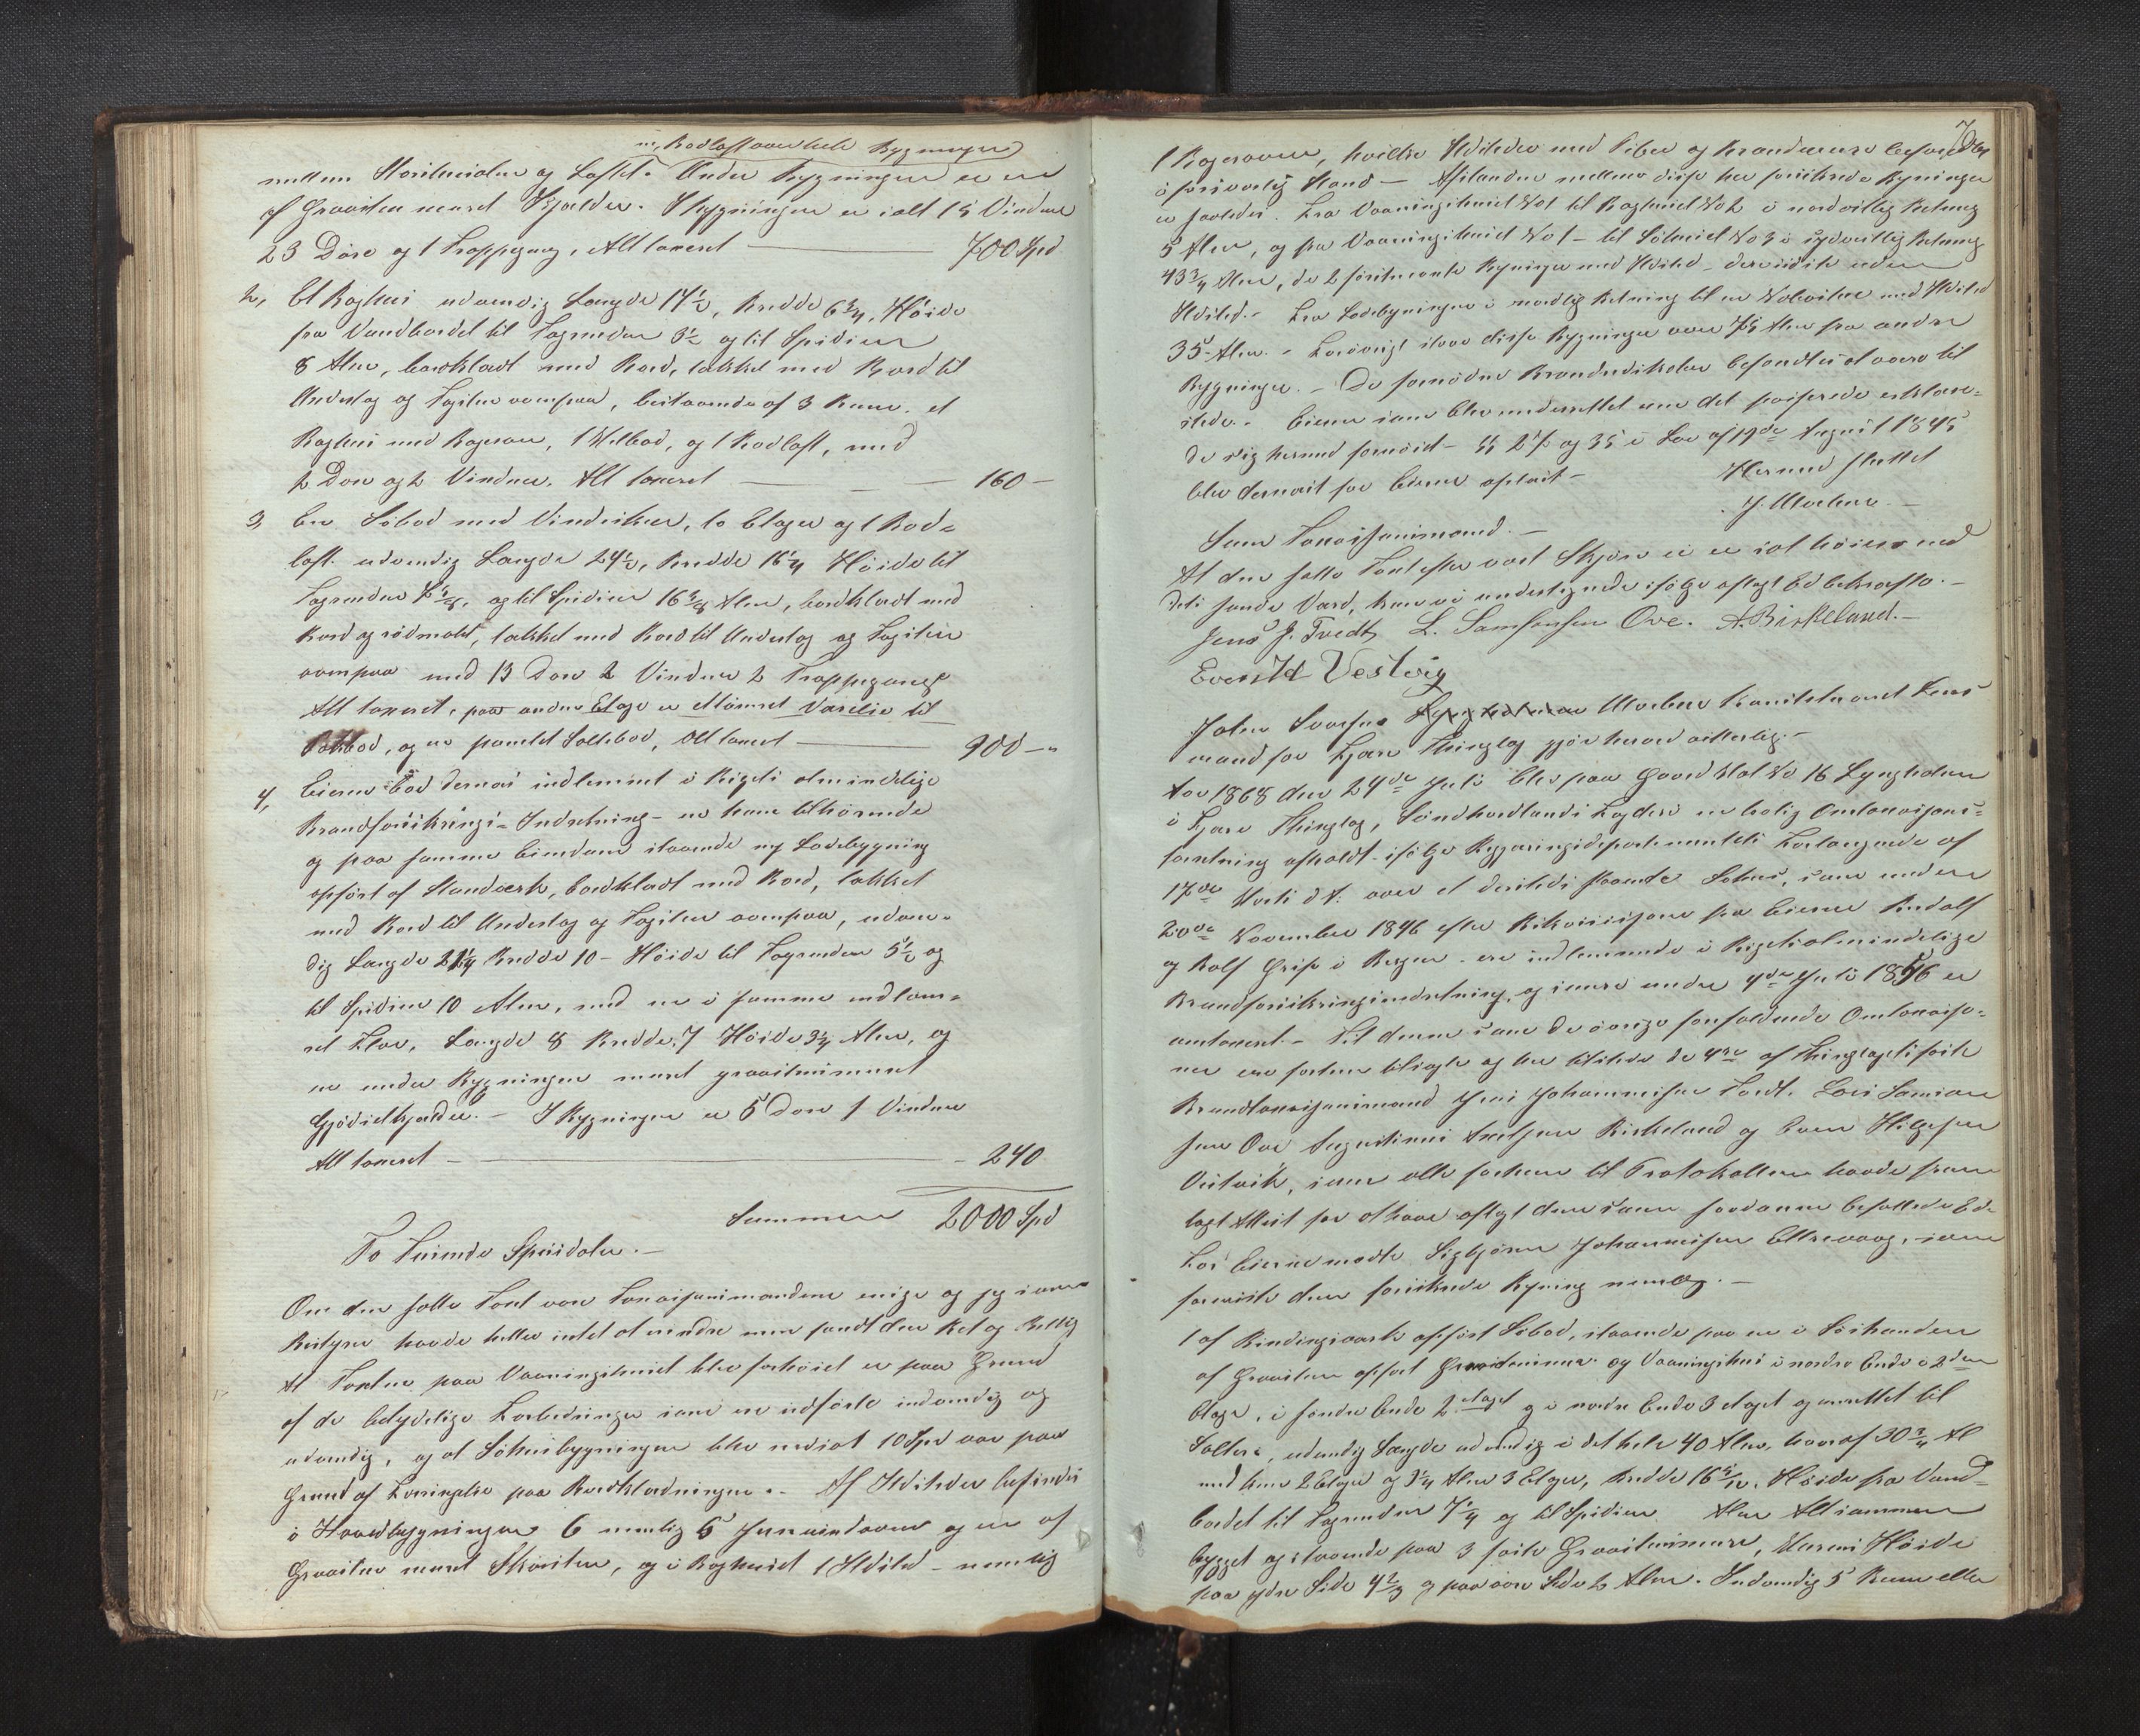 m, Rodloft over hele Bygningen
mellem og Loftet. Under Bygningen er en
af Graasten muret Kjelder. I Bygningen er ialt 15 Vinduer
23 Döre og 1 Trappegang, Alt taxeret — 700 Spd
2, Et Baghuus udvendig Længde 14½, Bredde 6¾, Höide
fra Vandbordet til Tagrenden 3½ og til Spidsen
8 Alen, bordklædt med Bord, takket med Bord til
Underlag og Tagsteen ovenpaa, bestaaende af 3 Rum. et
Baghuus med Bagerovn, 1 Vedbod, og 1 Rodloft, med
2 Döre og 2 Vinduer. Alt taxeret — 160 —
3, En Söbod med Vindeskur, to Etager og 1 Rod=
loft. udvendig Længde 24½, Bredde 16¼ Höide til
Tagrenden og til Spidsen 16⅜ Alen, bordklædt med
Bord og rödmalet, takket med Bord til Underlag og Tagsteen
ovenpaa med 13 Döre 2 Vinduer 2 Trappegange
Alt taxeret, paa anden Etage er
og en panelet Saltebod, Alt taxeret — 900 — "
4, Eieren bad dernæst indlemmet i Rigets almindelige
Brandforsikrings=Indretning — en ham tilhörende
og paa samme Eiendom staaende ny Ladebygning
opfört af Standværk, bordklædt med Bord, takket
med Bord til Underlag og Tagsteen ovenpaa, udven=
dig Længde 21¼ Bredde 10 — Höide til Tagrenden 5½ og
til Spidsen 10 Alen, med en i samme indtaxe=
ret Flor, Længde 8 Bredde 7 Höide 3¼ Alen, og
en under Bygningen muret graasteensmuret
Gjödselkjelder. — I Bygningen er 5 Döre 1 Vindue
Alt taxeret — 240
Summen 2000 Spd
To Tusinde Speciedaler. —
Om den satte Taxt vare Taxasjonsmændene enige og jeg som
Bestyrer havde heller intet at erindre men fandt den Ret og Billig
At Taxten paa Vaaningshuset blev forhöiet er paa Grund
af de betydelige Forbedringer som ere udförte indvendig og
udvendig, og at Söhuusbygningen blev nedsat 10 Spd var paa
Grund af Forringelse paa Bordklædningen. — Af Ildsteder befindes
i Hovedbygningen 6 nemlig 5 Jernvindovne og en af
Graasten muret Skorsten, og i Baghuset 1 Ildsted — nemlig
70
1 Bagerovn, hvilke Ildsteder med Piber og Brandmure befandtes
i forsvarlig Stand — Afstanden mellem disse her forsikrede Bygninger
er saaledes. Fra Vaaningshuset No 1 til Baghuset No 2 i nordvestlig Retning
5 Alen, og fra Vaaningshuset No 1 — til Söhuset No 3 i sydvestlig Retning
43¾ Alen, de 2 förstnævnte Bygninger med Ildsted — den sidste uden
Ildsted. — Fra Ladebygningen i nordlig Retning til en med Ildsted
35 Alen. — Forövrigt staae disse Bygninger over 75 Alen fra andre
Bygninger. — De fornödne Brandredskaber befandtes at være til
stede. — Eieren som blev underrettet om det passerede erklære=
de sig hermed fornöiet — §§ 27 og 35 i Lov af 19de August 1845
blev dernæst for Eieren oplæst —
Hermed sluttet
J. Morken. —
Som Taxasjonsmænd. —
At den satte Taxt efter vort Skjön ei er sat höiere end
dets sande Værd, kan vi undertegnede ifölge aflagt Ed bekræfte. —
Jens J. Tvedt, L. Samsonsen Ove. A. Birkeland. —
Even Hd Vestvig
John Larsen Morken Konstitueret Lens=
mand for Fjære Thinglag gjör herved vitterlig. —
Aar 1868 den 24de Juli blev paa Gaard Mat No 16 Lyngholmen
i Fjære Thinglag, Söndhordlands Fogderi en lovlig Omtaxasjons=
forretning afholdt ifölge Bygningsdepartementets Forlangende af
17de Marts d. A. over et dersteds staaende Söhuus, som under
20de November 1846 efter Rekvisisjon fra Eierne Rudolf
og Rolf Grip i Bergen — ere indlemmede i Rigets almindelige
Brandforsikringsindretning, og senere under 4de Juli 1856 er
omtaxeret. — Til denne som de övrige forefaldende Omtaxasjo=
ner ere forhen tilsagte og her tilstede de 4re af Thinglagets faste
Brandtaxasjonsmænd Jens Johannessen Tvedt. Lars Samson
sen Ove Augustinus Axelsen Birkeland og Even Helgesen
Vestvik, som alle forhen til Protokollen havde frem
lagt Attest for at have aflagt den som saadanne befattede Ed.
For Eierne mödte Sigbjörn Johannessen Eltravaag, som
foreviste den forsikrede Bygning nemlig. —
1 af Bindingsværk opfört Söbod, staaende paa en i Söstranden
af Graasten opfört Graasteinsmur og Vaaningshus i nordre Ende i 2den
Etage, i söndre Ende 2 etaget og i nordre Ende 3 etaget og indrettet til
Salteri, udvendig Længde udvendig i det hele 40 Alen, hvoraf 30¾ Al
med kun 2 Etager og 9¼ Alen 3 Etager, Bredde 16 5/12. Höide fra Vand=
bordet til Tagrenden 7¼ og til Spidsen Alen Alt sammen
bygget og staaende paa 3 faste Graasteinsmure, Murens Höide
paa ydre Side 4⅔ og paa övre Side 2 Alen. Indvendig 5 Rum eller